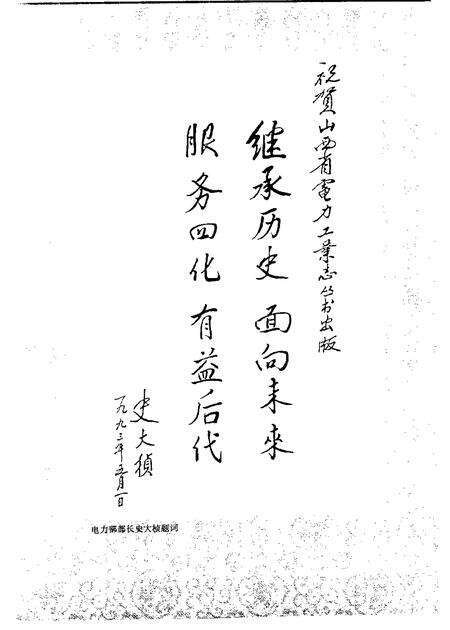 祝贺山西省電力工业志丛书出版
继承历史 面向未来
服务四化 有益后代
史大桢
一九九三年五月一日
电力部部长史大桢题词